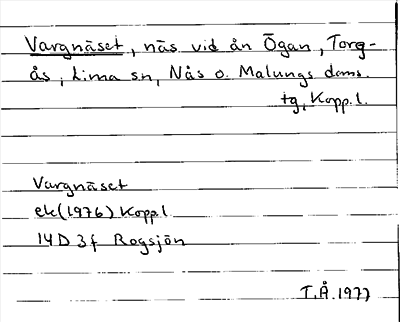 Vargnäset, näs vid ån Ögan, Torg-
ås, Lima sn, Nås o. Malungs doms.
tg, Kopp. l.
Vargnäset
ek(1976) Kopp.l
14D 3f Rogsjön
T.Å. 1977